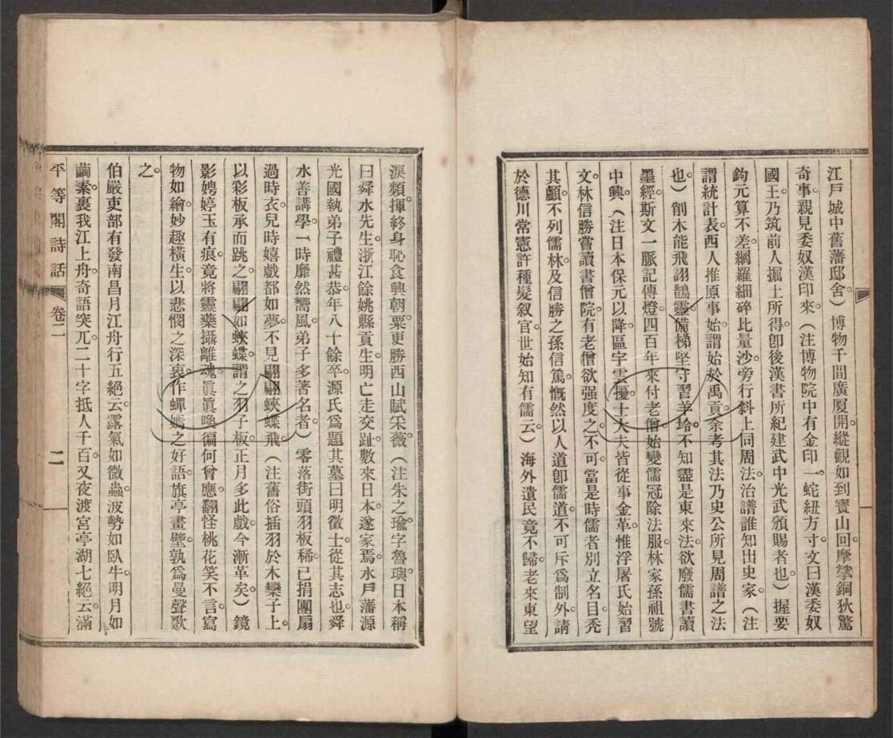 江戸城中舊藩邸舍。）博物千間廣厦開。縱觀如到寶山回。摩挲銅狄驚
奇事。親見委奴漢印來。（注博物院中有金印一。蛇紐方寸。文曰漢委奴
國王。乃筑前人掘土所得。卽後漢書所紀建武中光武頒賜者也。）握要
鉤元算不差。網羅細碎比量沙。旁行斜上同周法。治譜誰知出史家。（注
謂統計表。西人推原事始。謂始於禹貢。余考其法。乃史公所見周譜之法
也。）削木能飛詡鵲靈。備梯堅守習羊坽。不知盡是東來法。欲廢儒書讀
墨經。斯文一脈記傳燈。四百年來付老僧。始變儒冠除法服。林家孫祖號
中興。（注日本保元以降。區宇雲擾。士大夫皆從事金革。惟浮屠氏始習
文。林信勝嘗讀書僧院。有老僧欲强度之。不可。當是時儒者別立名目。禿
其顱。不列儒林。及信勝之孫信篤。慨然以人道卽儒道。不可斥爲制外。請
於德川常憲。許種髮叙官。世始知有儒云。）海外遺民竟不歸。老來東望
淚頻揮。終身恥食興朝粟。更勝西山賦采薇。（注朱之瑜字魯璵。日本稱
曰舜水先生。浙江餘姚縣貢生。明亡走交趾。數來日本。遂家焉。水戸藩源
光國執弟子禮甚恭。年八十餘卒。源氏爲題其墓曰明徵士。從其志也。舜
水善講學。一時靡然嚮風。弟子多著名者。）零落街頭羽板稀。已捐團扇
過時衣。兒時嬉戲都如夢。不見翩翩蛺蝶飛。（注舊俗插羽於木欒子上。
以彩板承而跳之。翩翩如蛺蝶。謂之羽子板。正月多此戲。今漸革矣。）鏡
影娉婷玉有痕。竟將靈藥攝離魂。眞眞喚徧何曾應。翻怪桃花笑不言。寫
物如繪。妙趣橫生。以悲憫之深衷。作蟬嫣之好語。旗亭畫壁。孰爲曼聲歌
之。
伯嚴吏部有發南昌月江舟行五絕云。露氣如微蟲。波勢如臥牛。明月如
繭素。裹我江上舟。奇語突兀。二十字抵人千百。又夜渡宮亭湖七絕云。滿
平等閣詩話　卷二　二